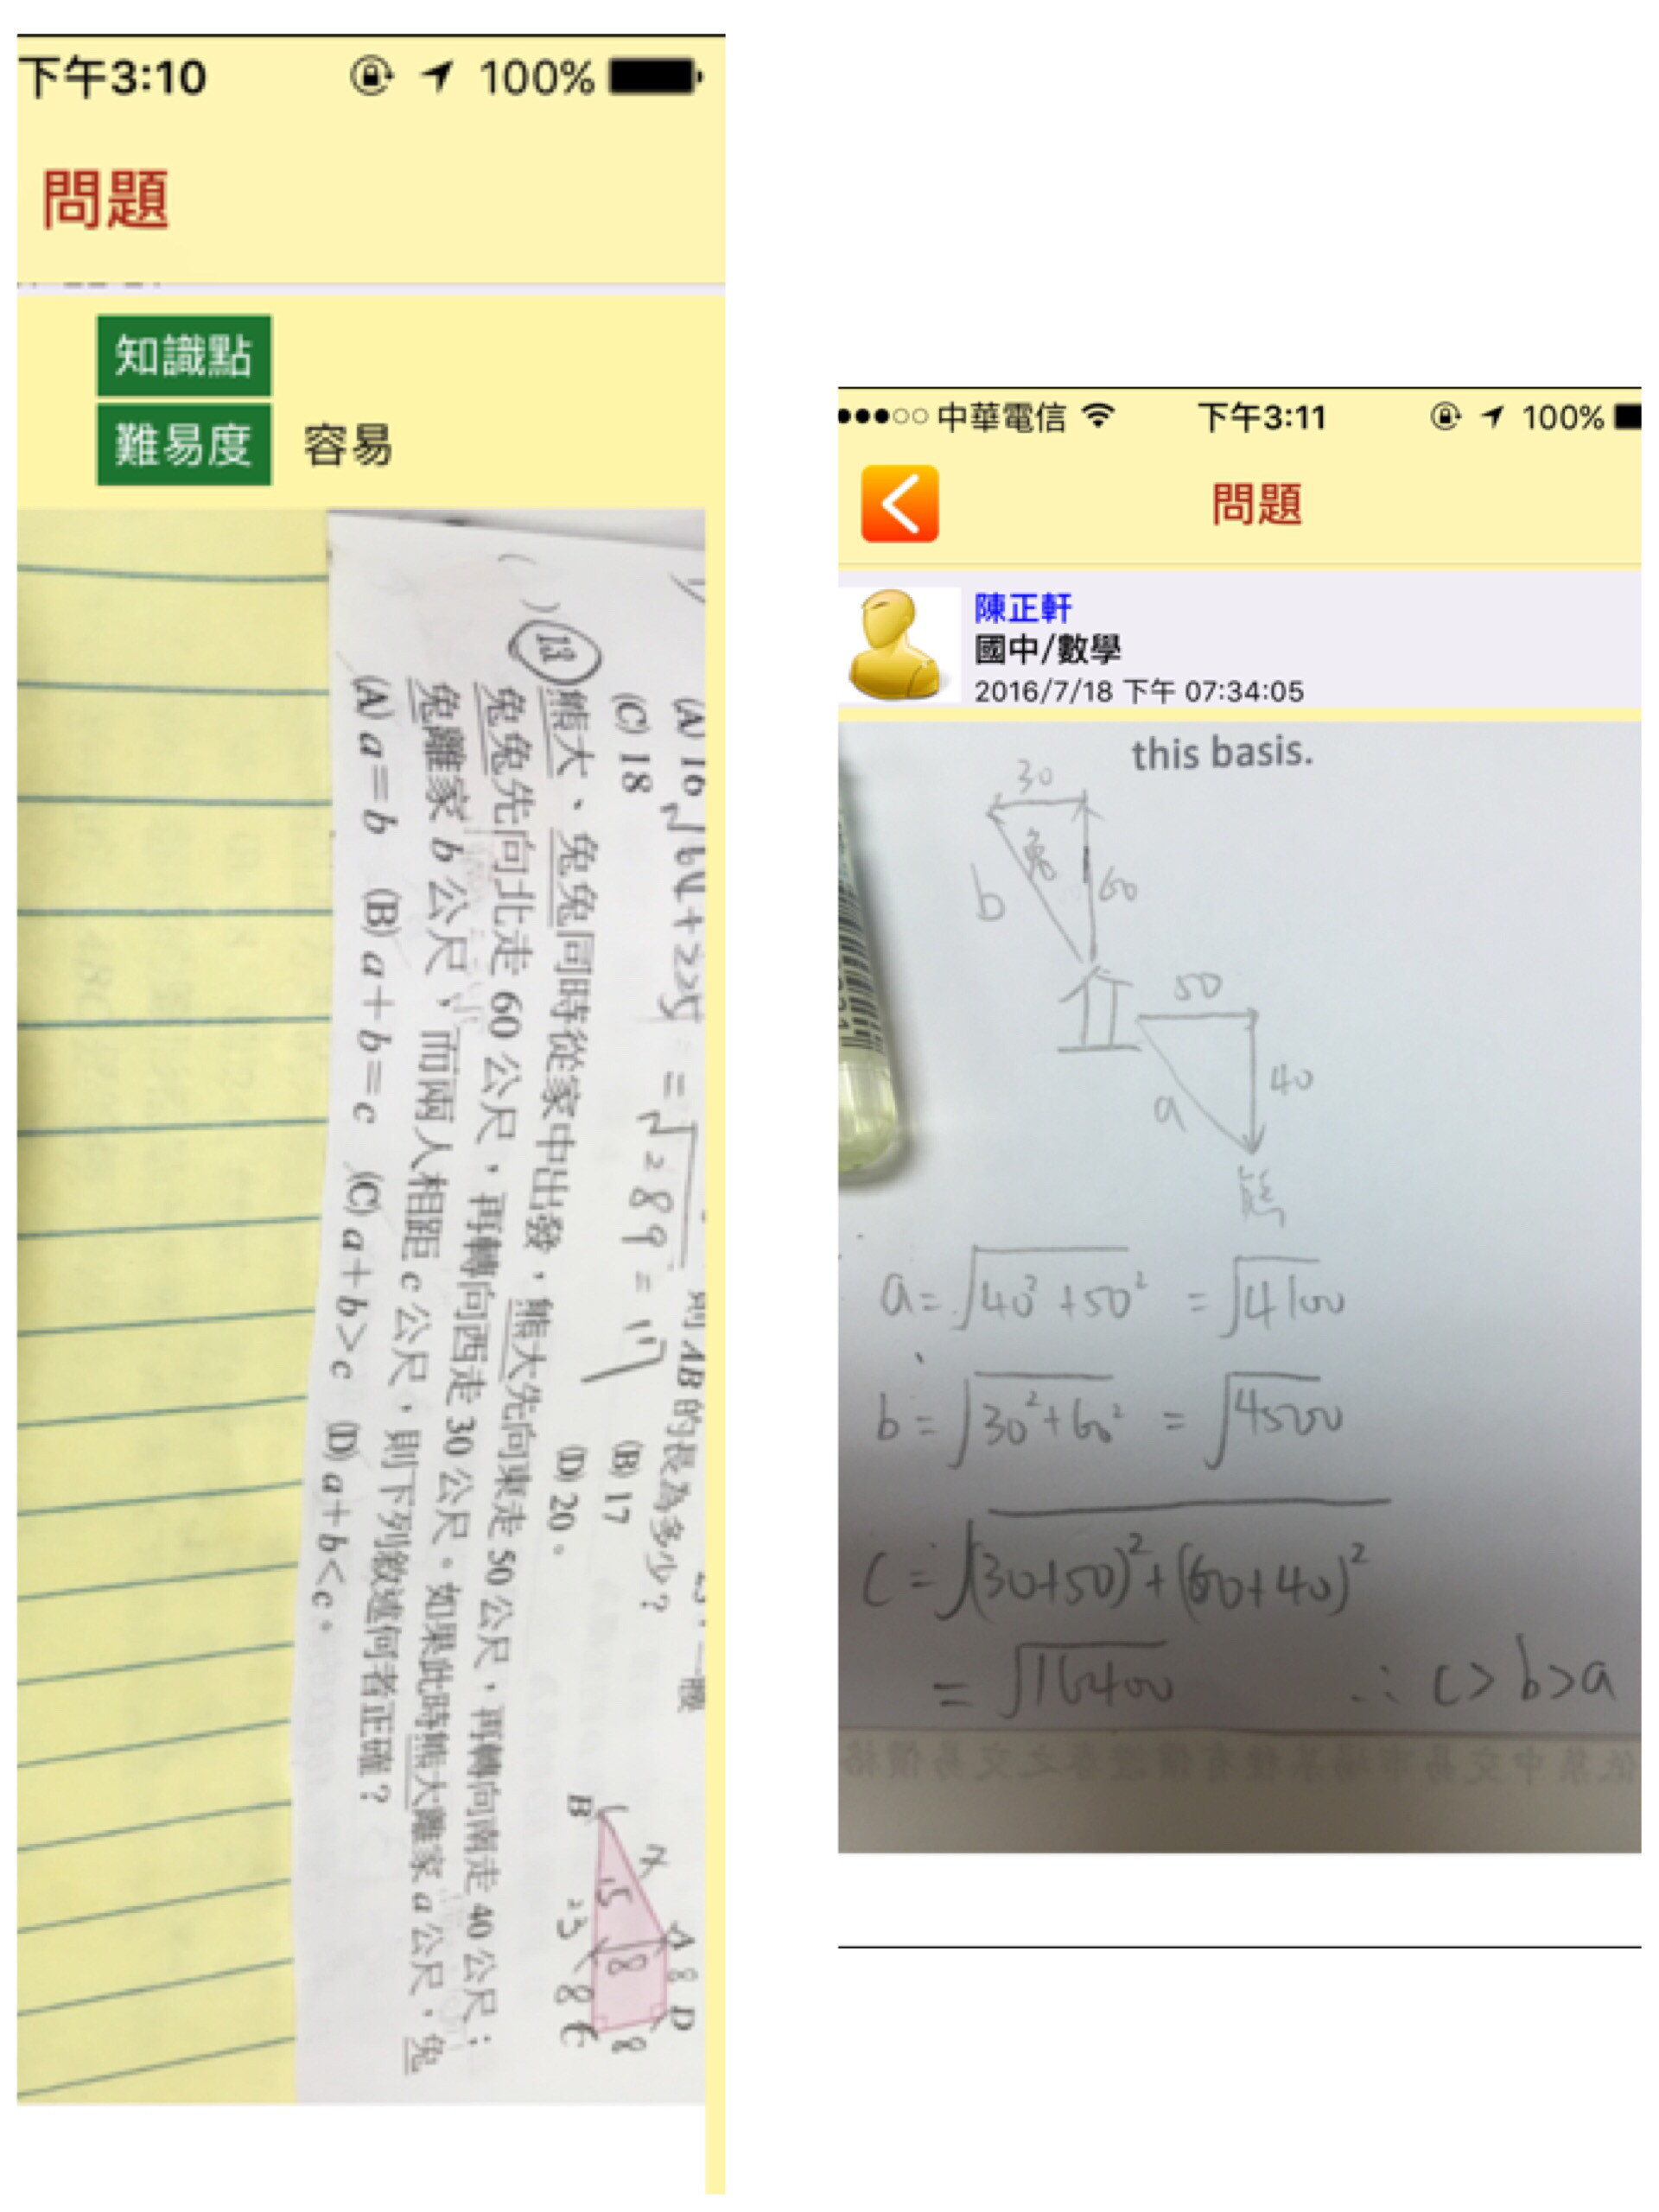 下午3:10
100%
問題
知識點
難易度 容易
(A) 16
(B) 17
(C) 18
(D) 20。
則 AB 的長為多少？
√64+225 = √289 = 17
B
A
D
C
x
15
8
8
8
8
23
( ) 13 熊大、兔兔同時從家中出發，熊大先向東走 50 公尺，再轉向南走 40 公尺；
兔兔先向北走 60 公尺，再轉向西走 30 公尺。如果此時熊大離家 a 公尺，兔
兔離家 b 公尺，而兩人相距 c 公尺，則下列敘述何者正確？
(A) a=b (B) a+b=c (C) a+b>c (D) a+b<c。
中華電信 下午3:11 100%
問題
陳正軒
國中/數學
2016/7/18 下午 07:34:05
this basis.
30
兔
b
60
50
40
a
熊
a=√40²+50² = √4100
b=√30²+60² = √4500
c=√(30+50)²+(60+40)²
=√16400 ∴ c>b>a